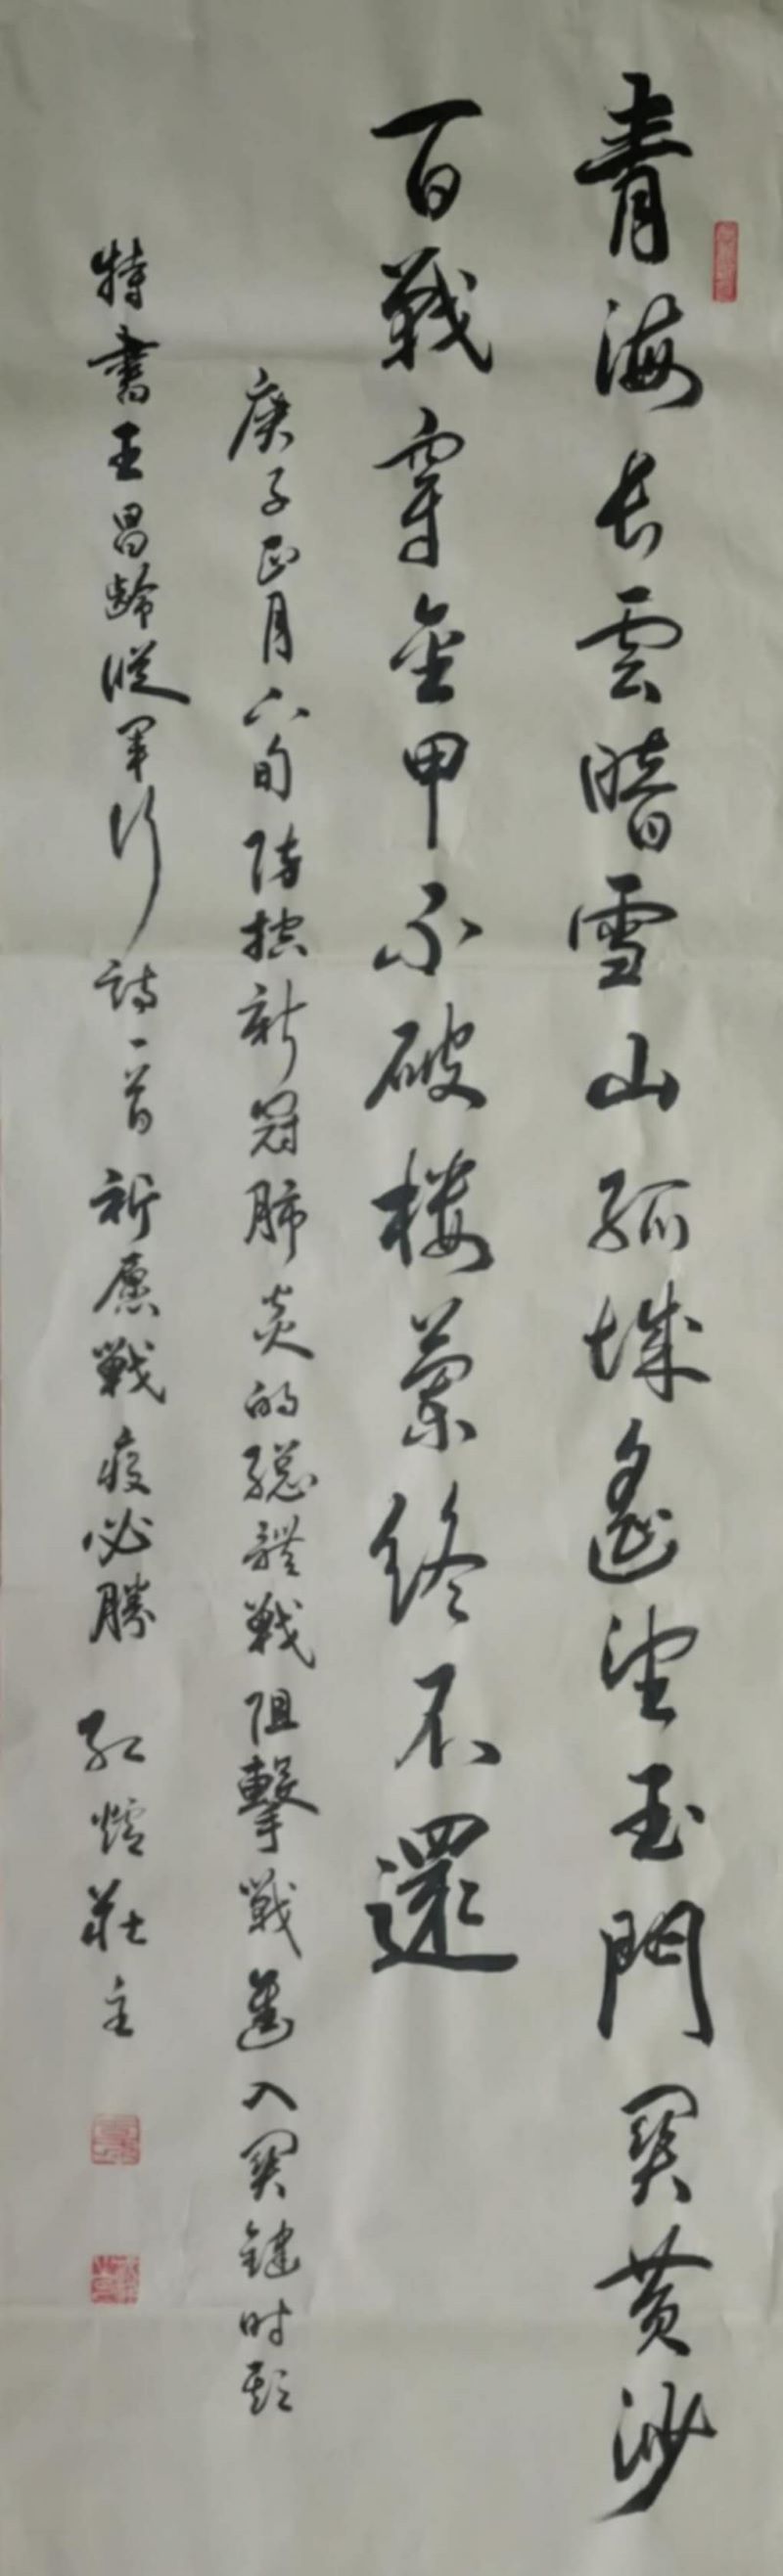 青海长雲暗雪山孤城遙望玉門関黄沙
百戰穿金甲不破楼蘭終不還
庚子正月下旬防控新冠肺炎的總體戰阻擊戰進入関鍵时刻
特書王昌齡從軍行詩一首祈愿戰疫必勝 紅爐莊主